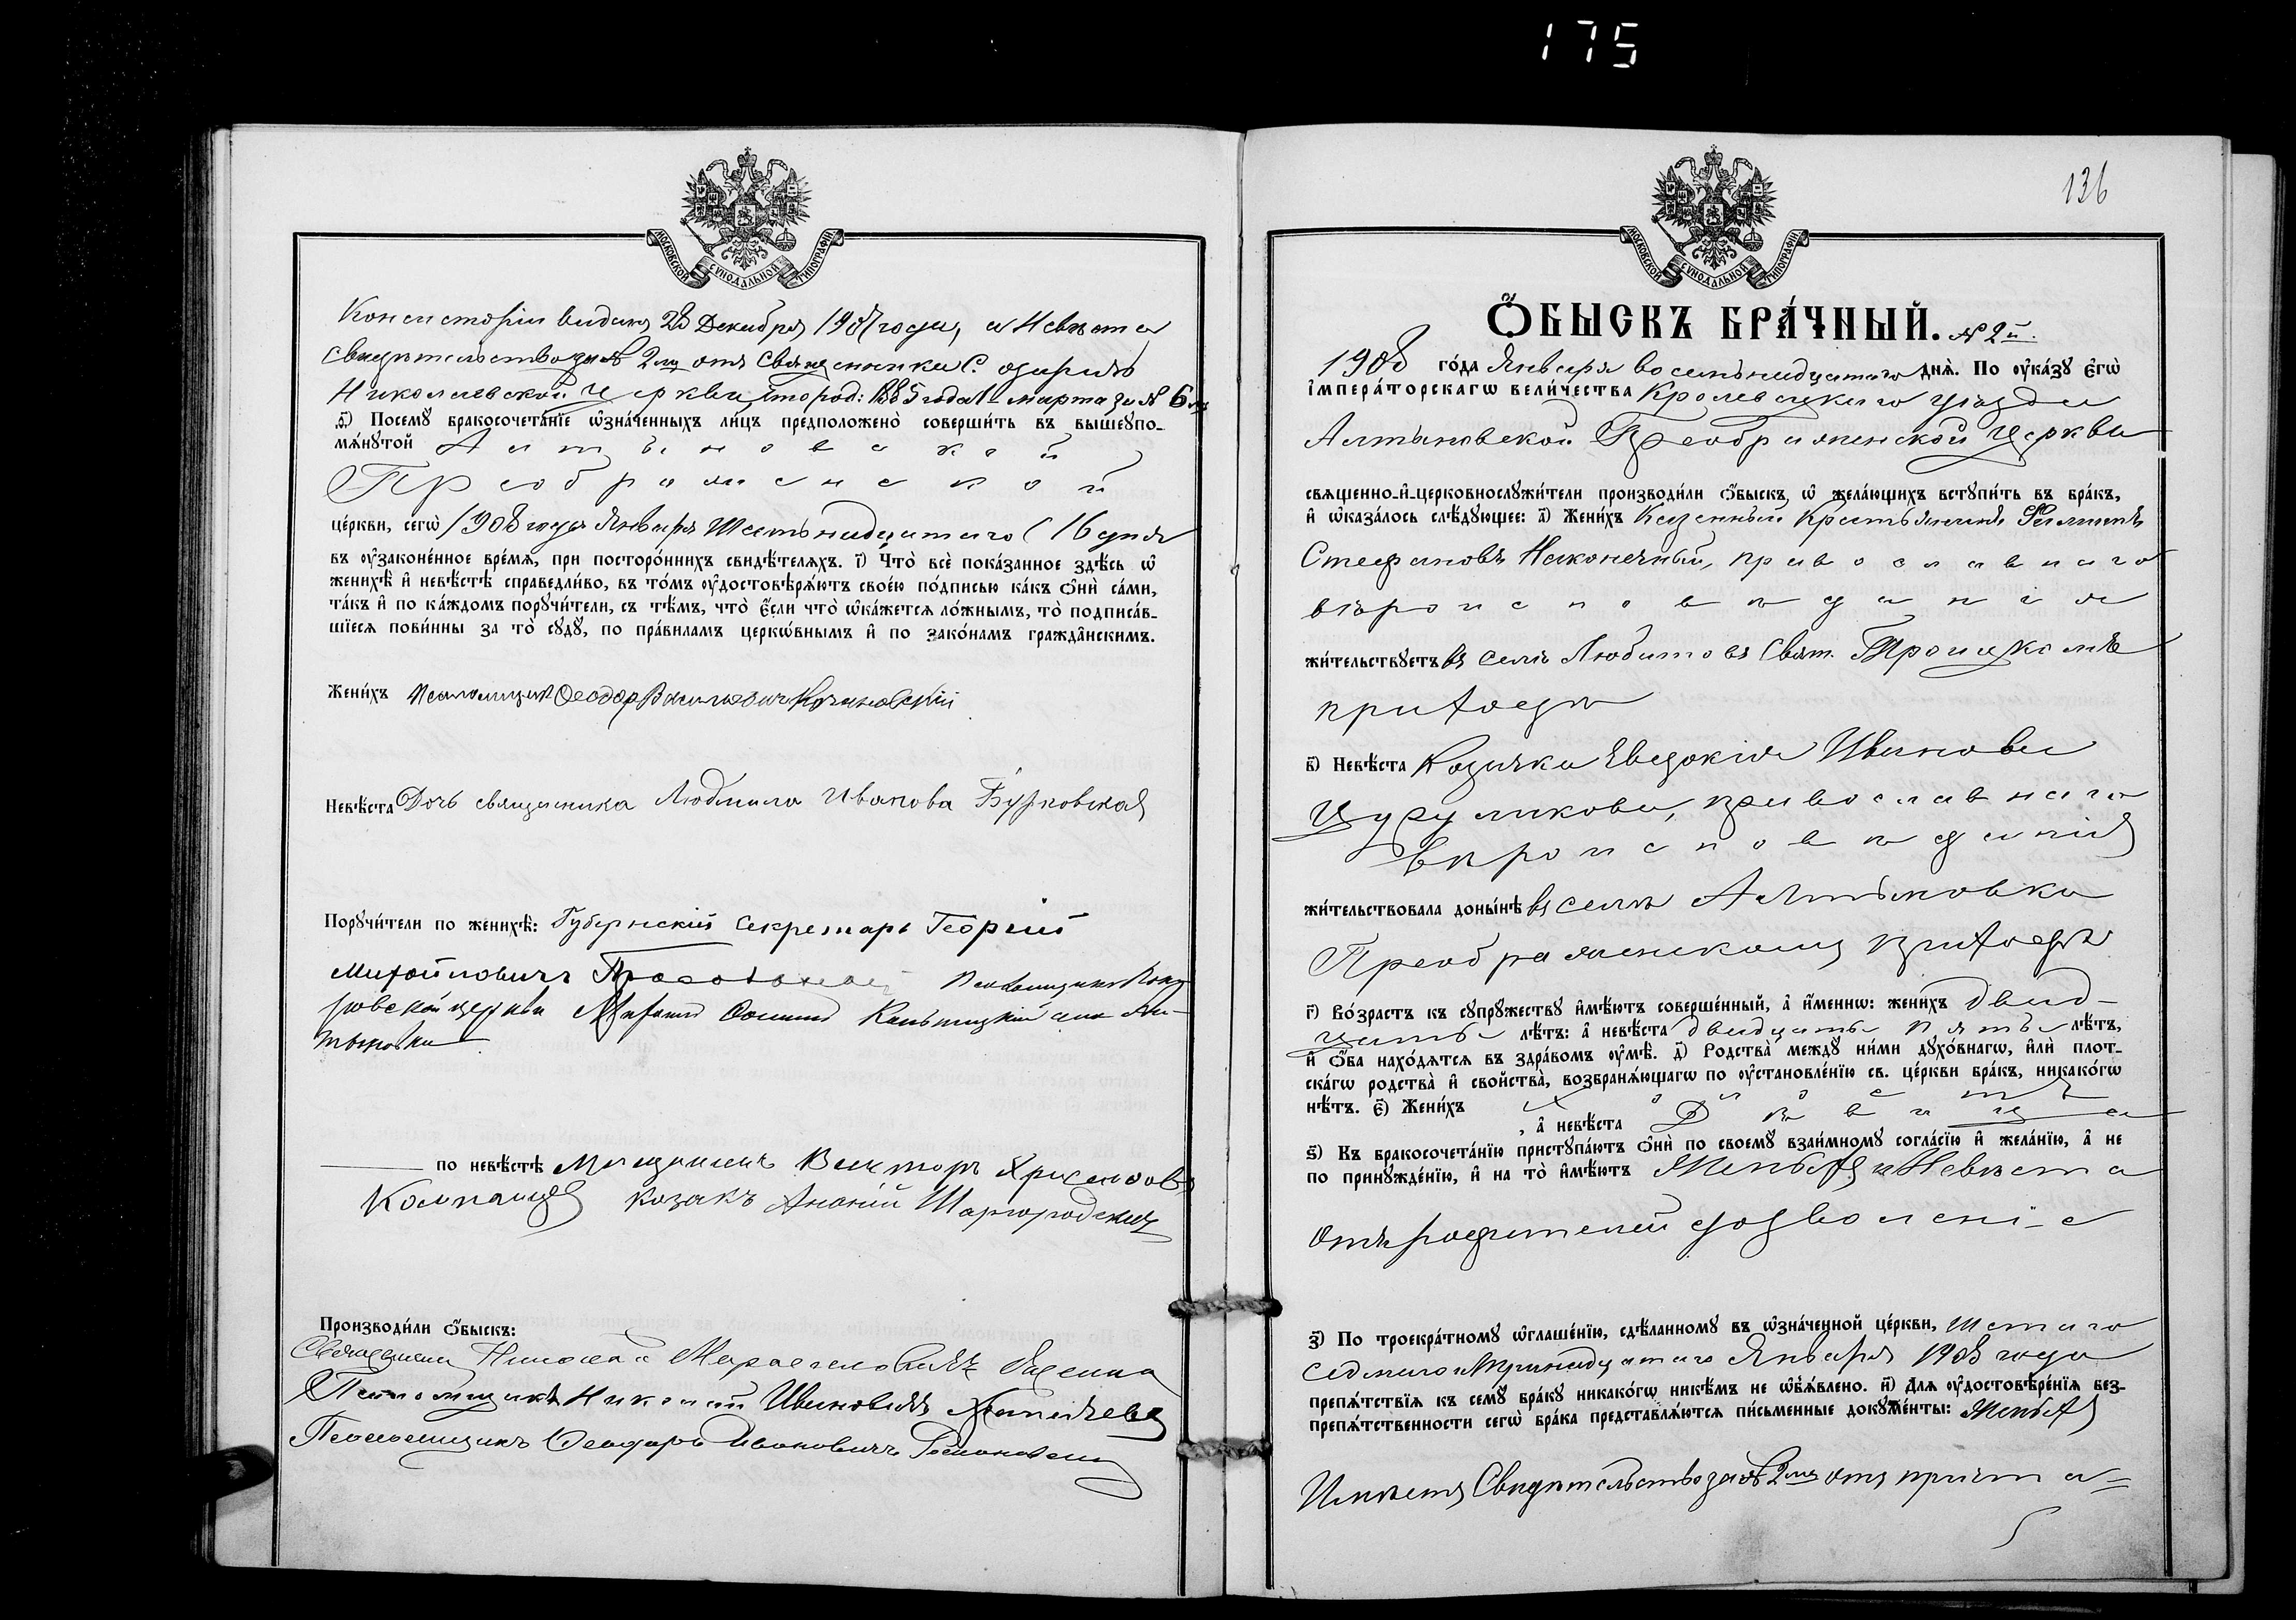 175
МОСКОВСКОЙ СѴНОДАЛЬНОЙ ТИПОГРАФІИ
Консисторіи видано 28 Декабря 1907 года, а Невѣста
Свидѣтельство за № 2мъ отъ Священника С.
Николаевской Церкви, что род: 1885 года 1 марта за № 6мъ
Ѳ҃) Посемꙋ̀ бракосочета́нїе ѡ҆зна́ченныхъ ли́цъ предположено̀ соверши́ть въ вышеꙋпо-
мѧ́нꙋтой Алтыновской
Преображенской
це́ркви, сегѡ̀ 1908 года Января Шестьнадцатаго (16 дня
въ оу҆законе́нное вре́мѧ, при посторо́ннихъ свидѣ́телѧхъ. І҃) Что̀ всѐ пока́занное здѣ́сь ѡ҆
женихѣ̀ и҆ невѣ́стѣ справедли́во, въ то́мъ оу҆достовѣрѧ́ютъ свое́ю по́дписью ка́къ ѻ҆нѝ са́ми,
та́къ и҆ по ка́ждомъ порꙋчи́тели, съ тѣ́мъ, что̀ є҆́сли что̀ ѡ҆ка́жетсѧ ло́жнымъ, то̀ подписа́в-
шїесѧ пови́нны за то̀ сꙋдꙋ̀, по пра́виламъ церкѡ́внымъ и҆ по зако́намъ гражда̂нскимъ.
Жени́хъ Псаломщикъ Ѳеодоръ Васильевичъ
Невѣ́ста Дочь священника Людмила Иванова Бутковская
Порꙋчи́тели по женихѣ̀: Губернскій Секретарь Георгій
Михайловичъ Псаломщикъ
церкви
по невѣ́стѣ Мѣщанинъ Викторъ
Компанецъ козакъ Ананій Шаргородскій
Производи́ли ѻ҆́быскъ:
Священникъ Николай
Псаломщикъ Николай Ивановичъ
Псаломщикъ Ѳеодоръ Ивановичъ
136
МОСКОВСКОЙ СѴНОДАЛЬНОЙ ТИПОГРАФІИ
Ѻ҆́БЫСКЪ БРА́ЧНЫЙ. № 2й.
1908 го́да Января восемьнадцатаго днѧ̀. По оу҆ка́зꙋ є҆гѡ̀
і҆мпера́торскагѡ вели́чества Кролевецкаго уѣзда
Алтыновской Преображенской Церкви
свѧще́нно-и҆-церковнослꙋжи́тели производи́ли ѻ҆́быскъ ѡ҆ жела́ющихъ встꙋпи́ть въ бра́къ,
и҆ ѡ҆каза́лось слѣ́дꙋющее: а҃) Жени́хъ Казенный Крестьянинъ Филиппъ
Стефановъ Наконечный, православнаго
вѣроисповѣданія
жи́тельствꙋетъ въ селѣ Любитовѣ Свят. Троицкомъ
приходѣ
в҃) Невѣ́ста Козачка Евдокія Иванова
Цурупикова, православнаго
вѣроисповѣданія
жи́тельствовала доны́нѣ въ селѣ Алтыновкѣ
Преображенскомъ приходѣ
г҃) Во́зрастъ къ сꙋпрꙋ́жествꙋ и҆мѣ́ютъ соверше́нный, а҆ и҆́меннѡ: жени́хъ двад-
цать лѣ́тъ: а҆ невѣ́ста двадцать пять лѣ́тъ,
и҆ ѻ҆́ба нахо́дѧтсѧ въ здра́вомъ оу҆мѣ̀. д҃) Родства̀ междꙋ̀ ни́ми дꙋхо́внагѡ, и҆лѝ плот-
ска́гѡ родства̀ и҆ сво́йства̀, возбранѧ́ющагѡ по оу҆становле́нїю св. це́ркви бра́къ, никако́гѡ
нѣ́тъ. є҃) Жени́хъ холостъ, а҆ невѣ́ста Дѣвица
ѕ҃) Къ бракосочета́нїю пристꙋпа́ютъ ѻ҆нѝ по своемꙋ̀ взаи́мномꙋ согла́сїю и҆ жела́нїю, а҆ не
по принꙋжде́нїю, и҆ на то̀ и҆мѣ́ютъ Женихъ и Невѣста
отъ родителей дозволеніе
з҃) По троекра́тномꙋ ѡ҆глаше́нїю, сдѣ́ланномꙋ въ ѡ҆зна́ченной це́ркви, шестаго
седьмаго и тринадцатаго Января 1908 года
препѧ́тствїѧ къ семꙋ̀ бра́кꙋ никако́гѡ никѣ́мъ не ѡ҆бъѧ́влено. и҃) Длѧ̀ оу҆достовѣре́нїѧ без-
препѧ́тственности сегѡ̀ бра́ка представлѧ́ютсѧ пи́сьменные докꙋме́нты: Женихъ
Имѣетъ Свидѣтельство за № 2мъ отъ причта